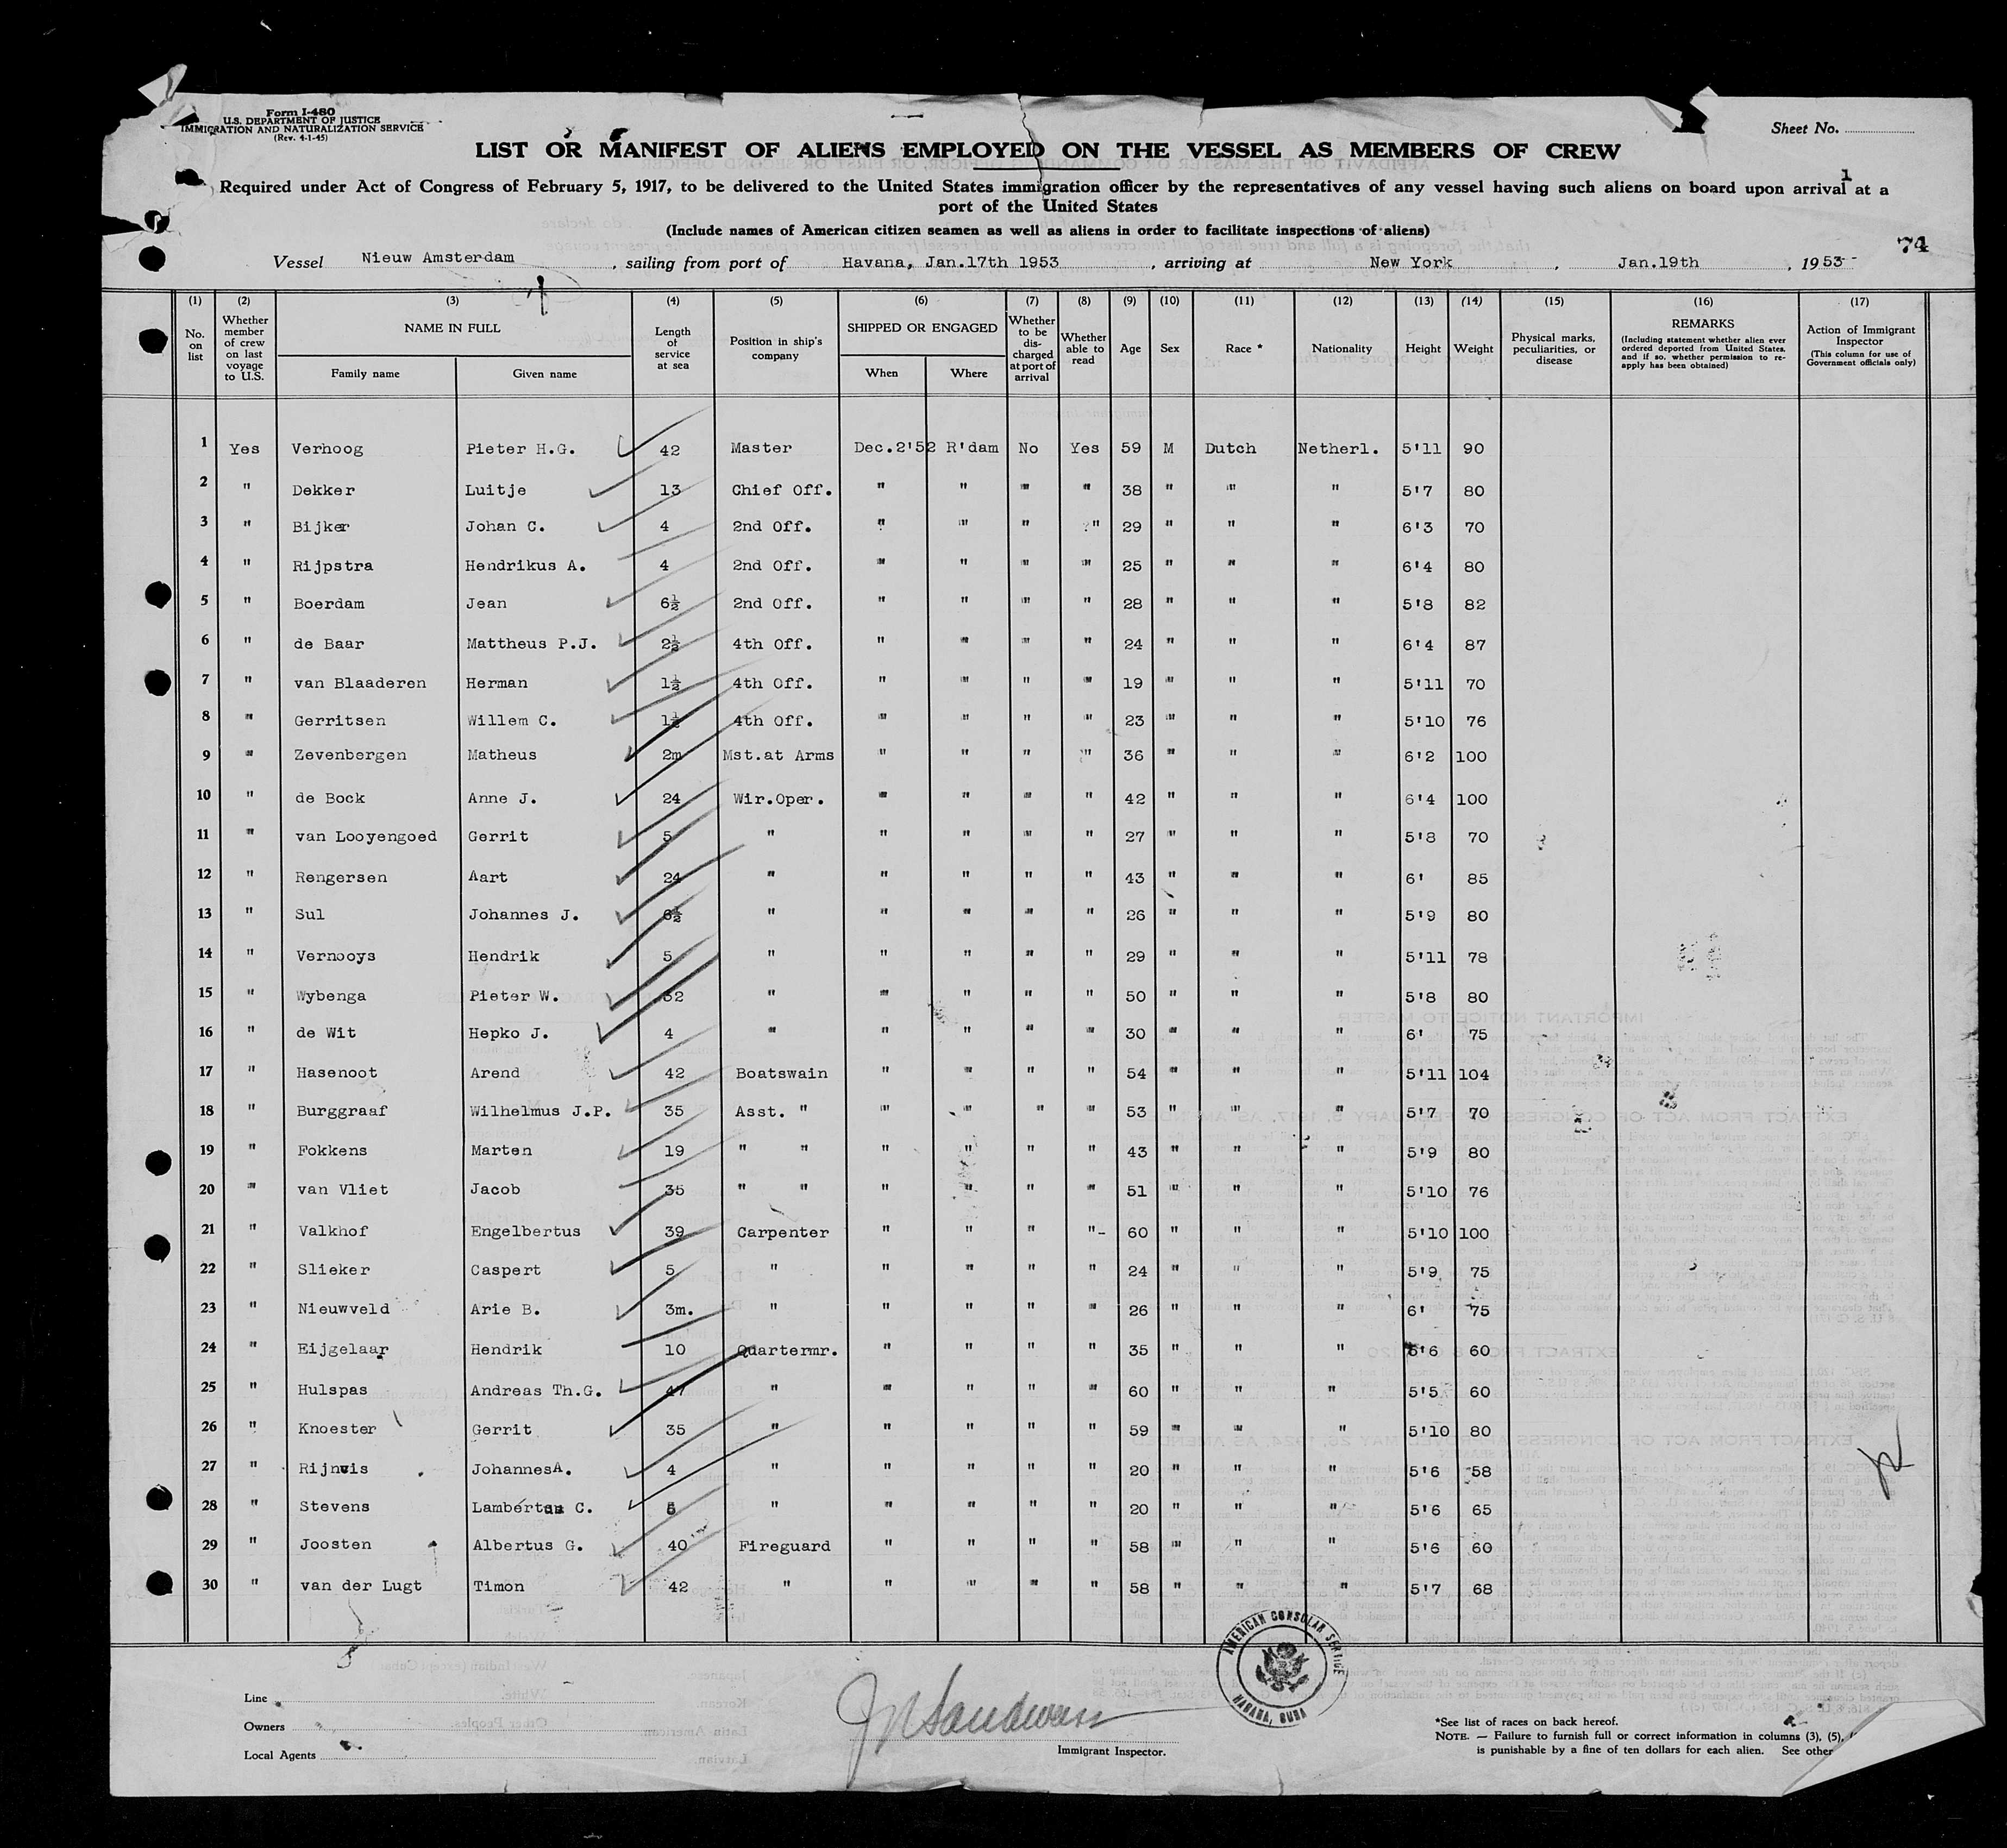 Form I-480
U.S. DEPARTMENT OF JUSTICE
IMMIGRATION AND NATURALIZATION SERVICE
(Rev. 4-1-45)
Sheet No.
LIST OR MANIFEST OF ALIENS EMPLOYED ON THE VESSEL AS MEMBERS OF CREW
1
Required under Act of Congress of February 5, 1917, to be delivered to the United States immigration officer by the representatives of any vessel having such aliens on board upon arrival at a
port of the United States
(Include names of American citizen seamen as well as aliens in order to facilitate inspections of aliens)
74
Vessel Nieuw Amsterdam, sailing from port of Havana, Jan.17th 1953, arriving at New York, Jan.19th, 1953
(1) (2) (3) (4) (5) (6) (7) (8) (9) (10) (11) (12) (13) (14) (15) (16) (17)
No. on list
Whether member of crew on last voyage to U.S.
NAME IN FULL
Family name
Given name
Length of service at sea
Position in ship's company
SHIPPED OR ENGAGED
When
Where
Whether to be discharged at port of arrival
Whether able to read
Age
Sex
Race *
Nationality
Height
Weight
Physical marks, peculiarities, or disease
REMARKS
(Including statement whether alien ever ordered deported from United States, and if so, whether permission to re-apply has been obtained)
Action of Immigrant Inspector
(This column for use of Government officials only)
1 Yes Verhoog Pieter H.G. 42 Master Dec.2'52 R'dam No Yes 59 M Dutch Netherl. 5'11 90
2 " Dekker Luitje 13 Chief Off. " " " " 38 " " " 5'7 80
3 " Bijker Johan C. 4 2nd Off. " " " " 29 " " " 6'3 70
4 " Rijpstra Hendrikus A. 4 2nd Off. " " " " 25 " " " 6'4 80
5 " Boerdam Jean 6½ 2nd Off. " " " " 28 " " " 5'8 82
6 " de Baar Mattheus P.J. 2½ 4th Off. " " " " 24 " " " 6'4 87
7 " van Blaaderen Herman 1½ 4th Off. " " " " 19 " " " 5'11 70
8 " Gerritsen Willem C. 1½ 4th Off. " " " " 23 " " " 5'10 76
9 " Zevenbergen Matheus 2m Mst.at Arms " " " " 36 " " " 6'2 100
10 " de Bock Anne J. 24 Wir.Oper. " " " " 42 " " " 6'4 100
11 " van Looyengoed Gerrit 5 " " " " " 27 " " " 5'8 70
12 " Rengersen Aart 24 " " " " " 43 " " " 6' 85
13 " Sul Johannes J. 6½ " " " " " 26 " " " 5'9 80
14 " Vernooys Hendrik 5 " " " " " 29 " " " 5'11 78
15 " Wybenga Pieter W. 32 " " " " " 50 " " " 5'8 80
16 " de Wit Hepko J. 4 " " " " " 30 " " " 6' 75
17 " Hasenoot Arend 42 Boatswain " " " " 54 " " " 5'11 104
18 " Burggraaf Wilhelmus J.P. 35 Asst. " " " " " 53 " " " 5'7 70
19 " Fokkens Marten 19 " " " " " " 43 " " " 5'9 80
20 " van Vliet Jacob 35 " " " " " " 51 " " " 5'10 76
21 " Valkhof Engelbertus 39 Carpenter " " " "- 60 " " " 5'10 100
22 " Slieker Caspert 5 " " " " " 24 " " " 5'9 75
23 " Nieuwveld Arie B. 3m. " " " " " 26 " " " 6' 75
24 " Eijgelaar Hendrik 10 Quartermr. " " " " 35 " " " 5'6 60
25 " Hulspas Andreas Th.G. 47 " " " " " 60 " " " 5'5 60
26 " Knoester Gerrit 35 " " " " " 59 " " " 5'10 80
27 " Rijnvis JohannesA. 4 " " " " " 20 " " " 5'6 58
28 " Stevens Lambertus C. 5 " " " " " 20 " " " 5'6 65
29 " Joosten Albertus G. 40 Fireguard " " " " 58 " " " 5'6 60
30 " van der Lugt Timon 42 " " " " " 58 " " " 5'7 68
AMERICAN CONSULAR SERVICE
HABANA, CUBA
Line
Owners
Local Agents
Immigrant Inspector.
*See list of races on back hereof.
NOTE. — Failure to furnish full or correct information in columns (3), (5),
is punishable by a fine of ten dollars for each alien. See other